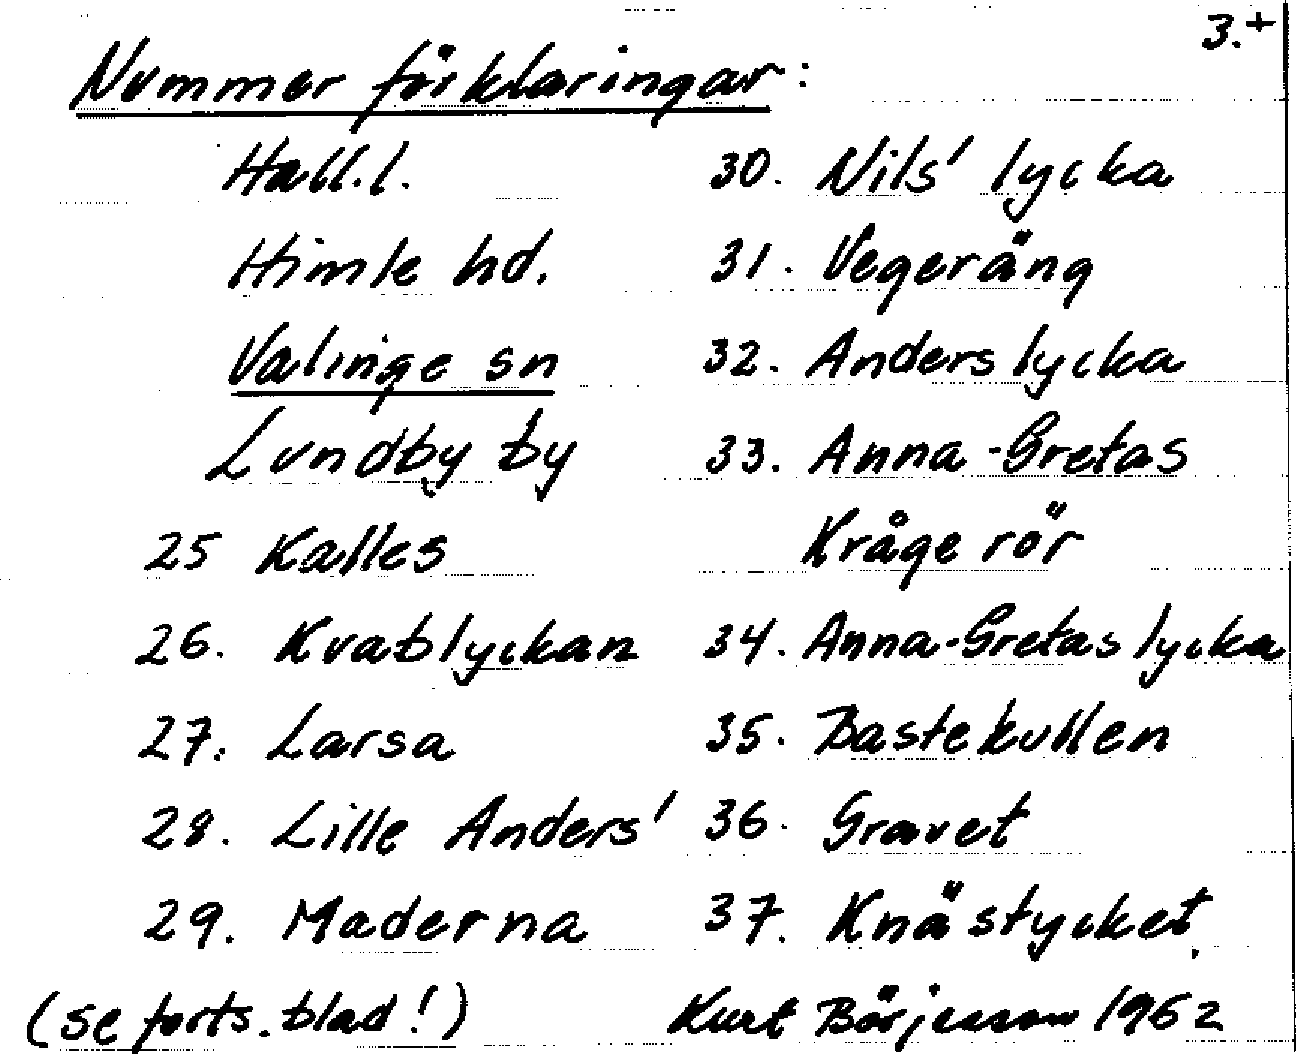 3.+
Nummer förklaringar:
Hall.l.
Himle hd.
Valinge sn
Lundby by
25 Kalles
26. Kvablyckan
27. Larsa
28. Lille Anders'
29. Maderna
(se forts. blad!)
30. Nils' lycka
31. Vegeräng
32. Anders lycka
33. Anna-Gretas
Kråge rör
34. Anna-Gretas lycka
35. Bastekullen
36. Gravet
37. Knästycket.
Kurt Börjesson 1962